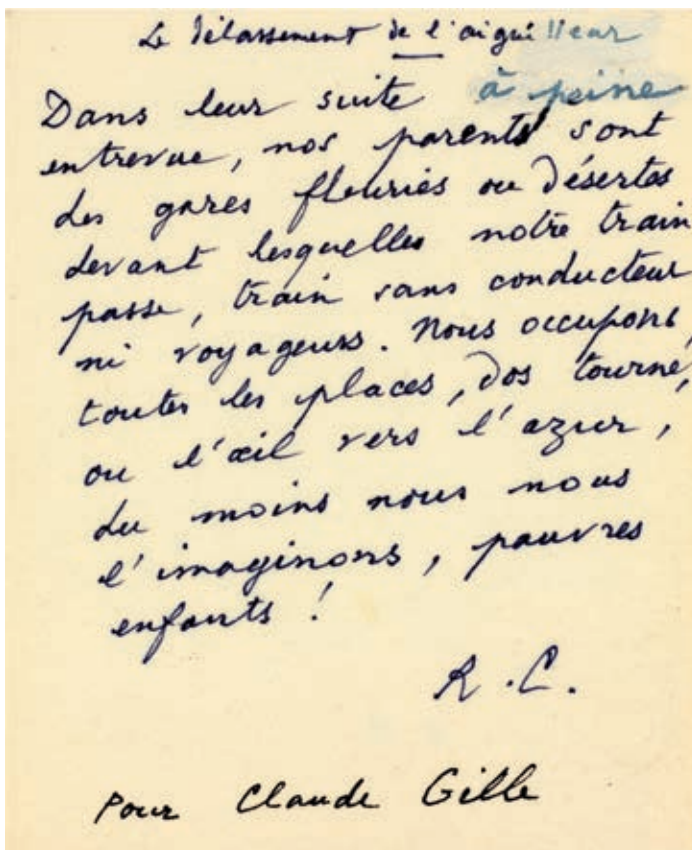 Le délassement de l'aiguilleur
Dans leur suite à peine
entrevue, nos parents sont
des gares fleuries ou désertes
devant lesquelles notre train
passe, train sans conducteur
ni voyageurs. Nous occupons
toutes les places, dos tourné,
ou l'œil vers l'azur,
du moins nous nous
l'imaginons, pauvres
enfants !
R.C.
Pour Claude Gille